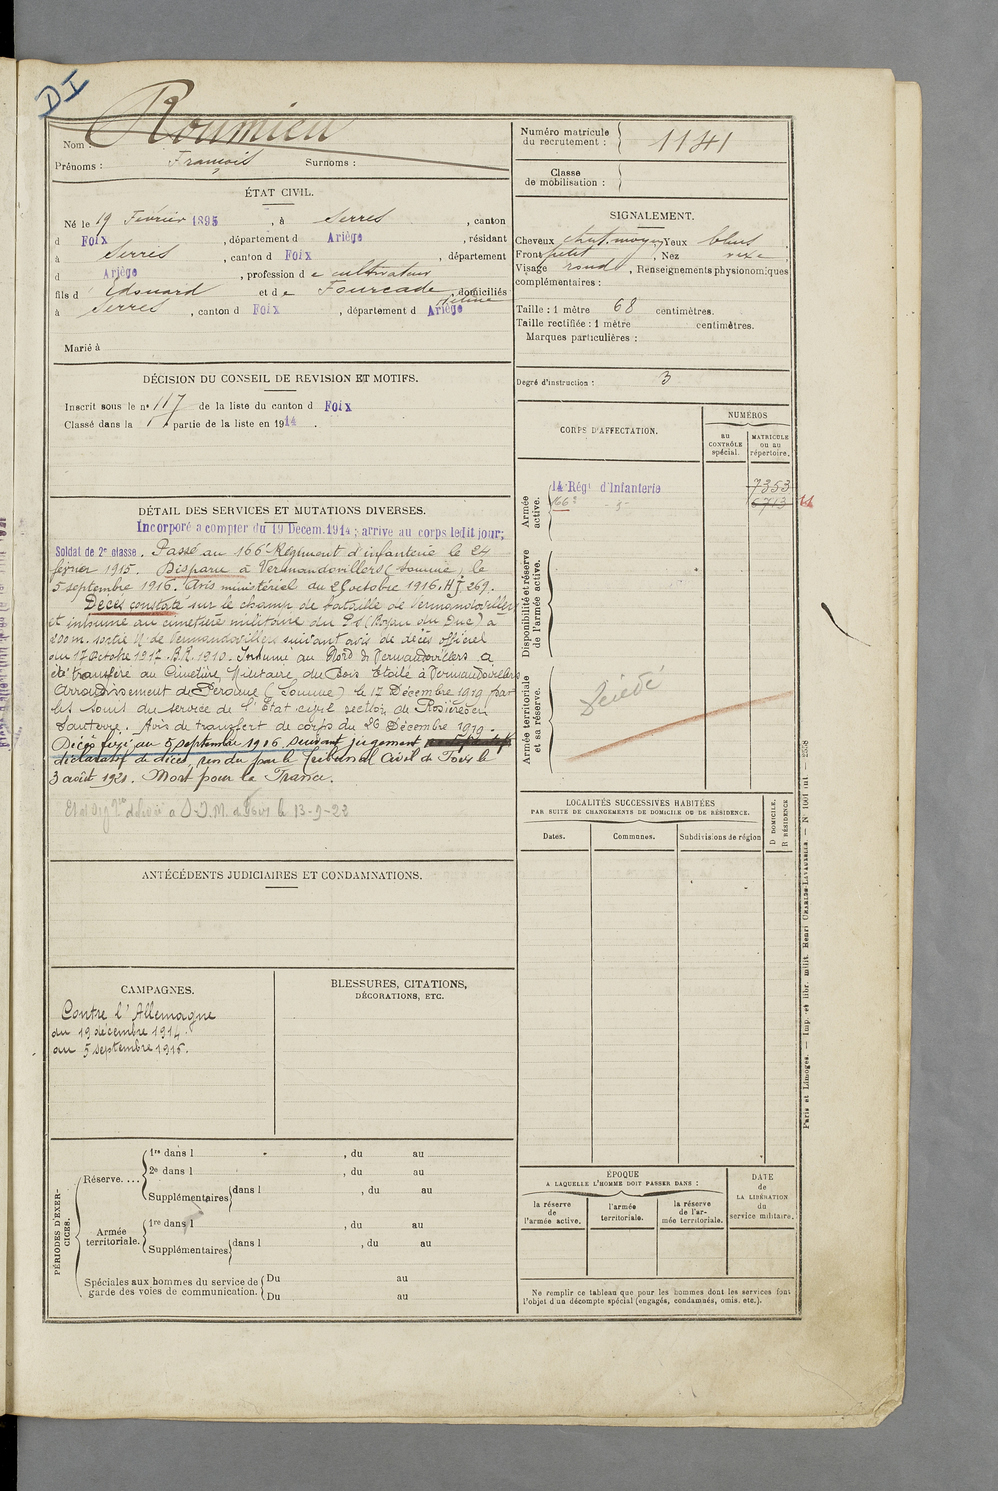 DI
Nom : Roumieu
Prénoms : François Surnoms :
Numéro matricule
du recrutement : 1141
Classe
de mobilisation :
ÉTAT CIVIL.
Né le 19 Février 1895, à Serres, canton
d Foix, département d Ariège, résidant
à Serres, canton d Foix, département
d Ariège, profession de cultivateur
fils d Edouard et de Fourcade, domiciliés
Hélène
à Serres, canton d Foix, département d Ariège
Marié à
SIGNALEMENT.
Cheveux chat. moyen Yeux bleus
Front petit, Nez
Visage rond, Renseignements physionomiques
complémentaires :
Taille : 1 mètre 68 centimètres.
Taille rectifiée : 1 mètre centimètres.
Marques particulières :
Degré d'instruction : 3
DÉCISION DU CONSEIL DE REVISION ET MOTIFS.
Inscrit sous le nº 117 de la liste du canton d Foix
Classé dans la 1 partie de la liste en 1914.
DÉTAIL DES SERVICES ET MUTATIONS DIVERSES.
Incorporé à compter du 19 Décem. 1914 ; arrivé au corps ledit jour ;
Soldat de 2e classe. Passé au 166e Régiment d'infanterie le 24
février 1915. Disparu à Vermandovillers (Somme) le
5 septembre 1916. Avis ministériel du 26 octobre 1916. HJ 269.
Décès constaté sur le champ de bataille de Vermandovillers
et inhumé au cimetière militaire du (Boyau du Duc) à
200 m. sortie N. de Vermandovillers suivant avis de décès officiel
du 17 Octobre 1917. B.R. 1910. Inhumé au Nord de Vermandovillers a
été transféré au Cimetière Militaire du Bois Etoilé à Vermandovillers
Arrondissement de Péronne (Somme) le 17 Décembre 1919 par
les soins du service de l'Etat civil section de Rosières en
Santerre. Avis de transfert de corps du 26 Décembre 1919.
Décès fixé au 5 septembre 1916 suivant jugement
déclaratif de décès, rendu par le Tribunal Civil de Foix le
3 août 1921. Mort pour la France.
délivré a D.D.M. de Foix le 13-9-22
CORPS D'AFFECTATION.
NUMÉROS
au
CONTRÔLE
spécial.
MATRICULE
ou au
répertoire.
Armée
active.
14e Régt d'Infanterie 7353
166e - 5- 6713
Disponibilité et réserve
de l'armée active.
Armée territoriale
et sa réserve.
Décédé
LOCALITÉS SUCCESSIVES HABITÉES
PAR SUITE DE CHANGEMENTS DE DOMICILE OU DE RÉSIDENCE.
Dates. Communes. Subdivisions de région
D DOMICILE.
R RÉSIDENCE
ANTÉCÉDENTS JUDICIAIRES ET CONDAMNATIONS.
CAMPAGNES.
Contre l'Allemagne
du 19 décembre 1914
au 5 septembre 1916.
BLESSURES, CITATIONS,
DÉCORATIONS, ETC.
PÉRIODES D'EXER-
CICES.
Réserve....
1re dans l , du au
2e dans l , du au
Supplémentaires dans l , du au
Armée
territoriale.
1re dans l , du au
Supplémentaires dans l , du au
Spéciales aux hommes du service de
garde des voies de communication.
Du au
Du au
ÉPOQUE
A LAQUELLE L'HOMME DOIT PASSER DANS :
la réserve
de
l'armée active.
l'armée
territoriale.
la réserve
de l'ar-
mée territoriale.
DATE
de
LA LIBÉRATION
du
service militaire.
Ne remplir ce tableau que pour les hommes dont les services font
l'objet d'un décompte spécial (engagés, condamnés, omis, etc.).
Paris et Limoges. — Imp. et libr. milit. Henri CHARLES-LAVAUZELLE. — Nº 1001 int. - 2558